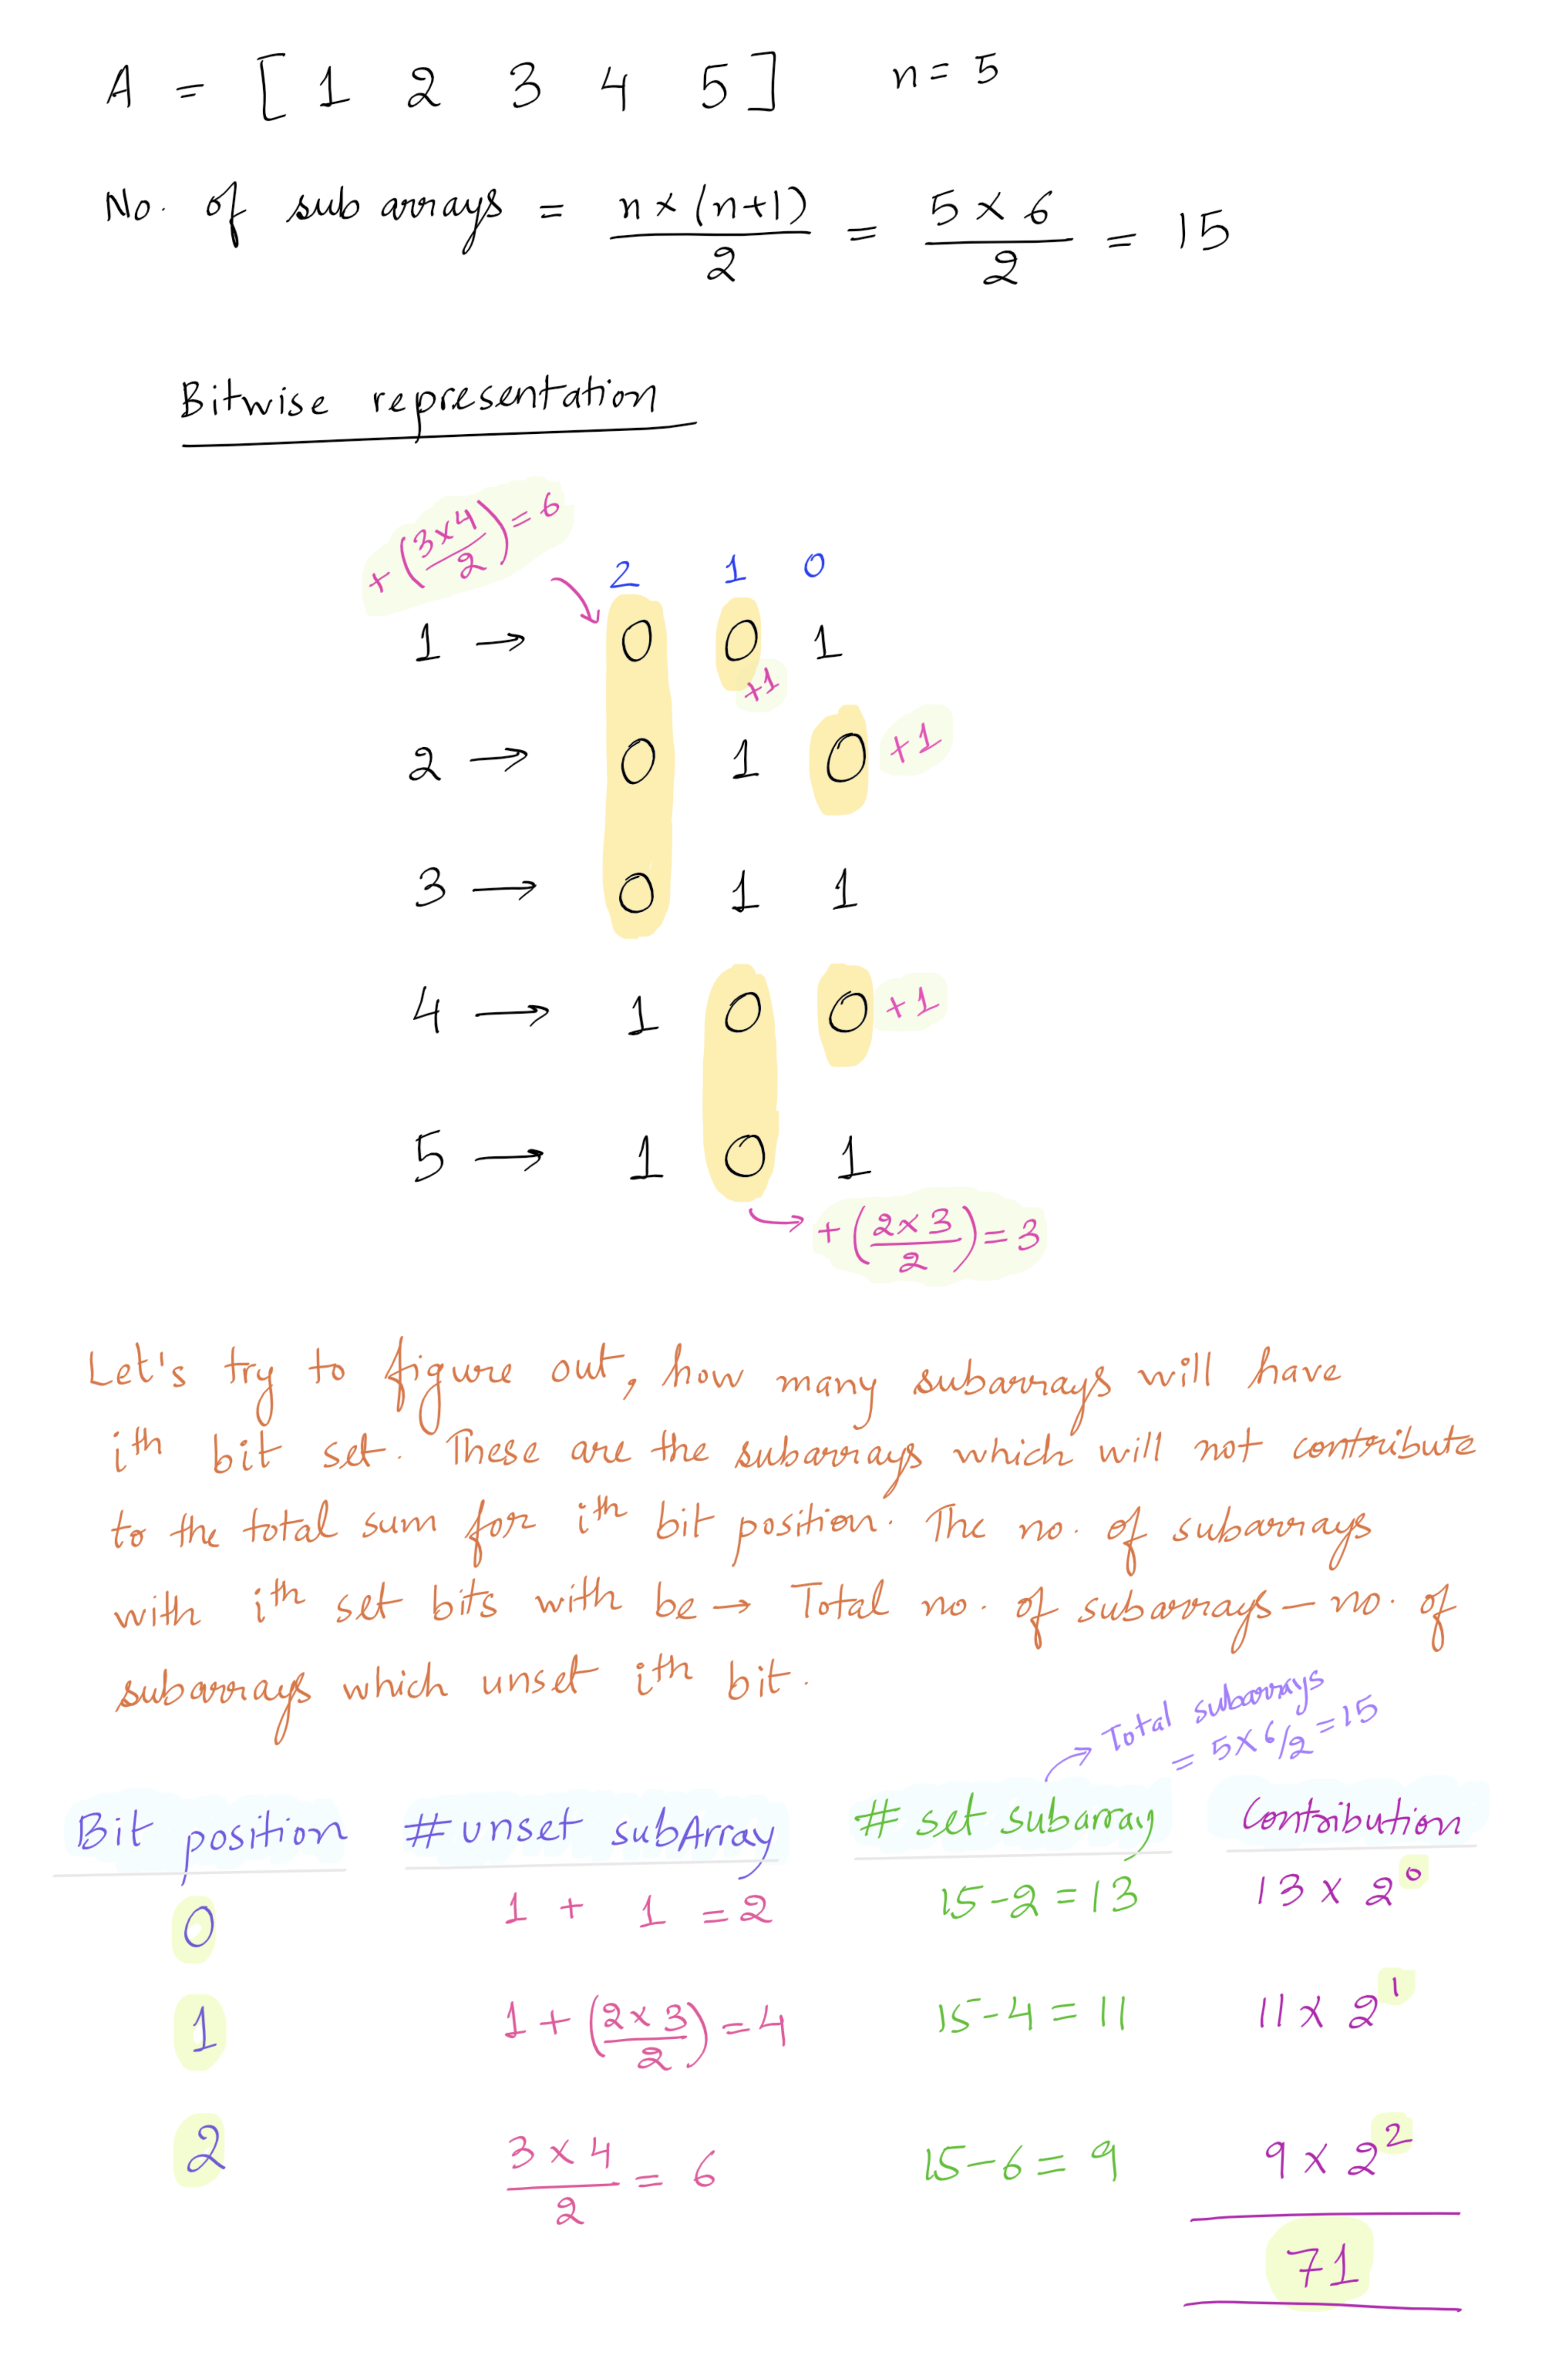 A = [ 1 2 3 4 5 ] n = 5
No. of sub arrays = n × (n+1) / 2 = 5 × 6 / 2 = 15
Bitwise representation
+ (3×4 / 2) = 6
2 1 0
1 → 0 0 1
+1
2 → 0 1 0 +1
3 → 0 1 1
4 → 1 0 0 +1
5 → 1 0 1
+ (2×3 / 2) = 3
Let's try to figure out, how many subarrays will have
ith bit set. These are the subarrays which will not contribute
to the total sum for ith bit position. The no. of subarrays
with ith set bits with be → Total no. of subarrays – no. of
subarrays which unset ith bit.
Total subarrays
= 5×6/2 = 15
Bit position #unset subArray # set subarray Contribution
0 1 + 1 = 2 15-2 = 13 13 × 2^0
1 1 + (2×3 / 2) = 4 15-4 = 11 11 × 2^1
2 3×4 / 2 = 6 15-6 = 9 9 × 2^2
71